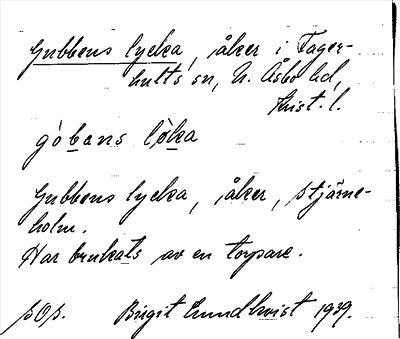 Gubbens lycka, åker i Fager-
hults sn, N. Åsbo hd,
Krist. l.
gòbans lø̀ka
Gubbens lycka, åker, Stjärne-
holm.
Har brukats av en torpare.
sOs. Birgit Lundkvist 1939.